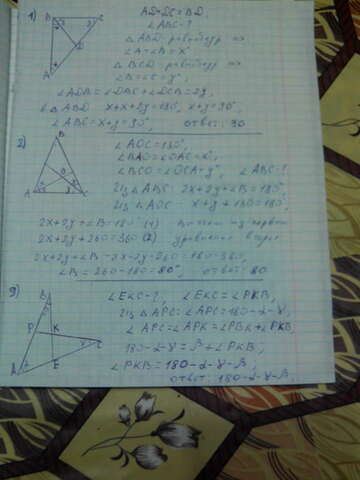 1) AD=DC=BD,
∠ABC-?
△ABD-
∠A=∠B=x°
△BCD-
∠B=∠C=y°,
∠ADB=∠DBC+∠DCB=2y,
в △ABD x+x+2y=180°, x+y=90°,
∠ABC=x+y=90°, ответ: 90
2) ∠AOC=130°,
∠BAO=∠OAC=x°,
∠BCO=∠OCA=y°, ∠ABC-?
Из △ABC: 2x+2y+∠B=180°
Из △AOC - x+y+130=180,
2x+2y+∠B=180° (1)
2x+2y+260=360 (2)
2x+2y+∠B-2x-2y-260=180-360,
∠B=260-180=80°, ответ: 80
9) ∠EKC-?, ∠EKC=∠PKB,
Из △APC: ∠APC=180-α-γ,
∠APC=∠APK=∠PBK+∠PKB
180-α-γ=β+∠PKB,
∠PKB=180-α-γ-β,
ответ: 180-α-γ-β.